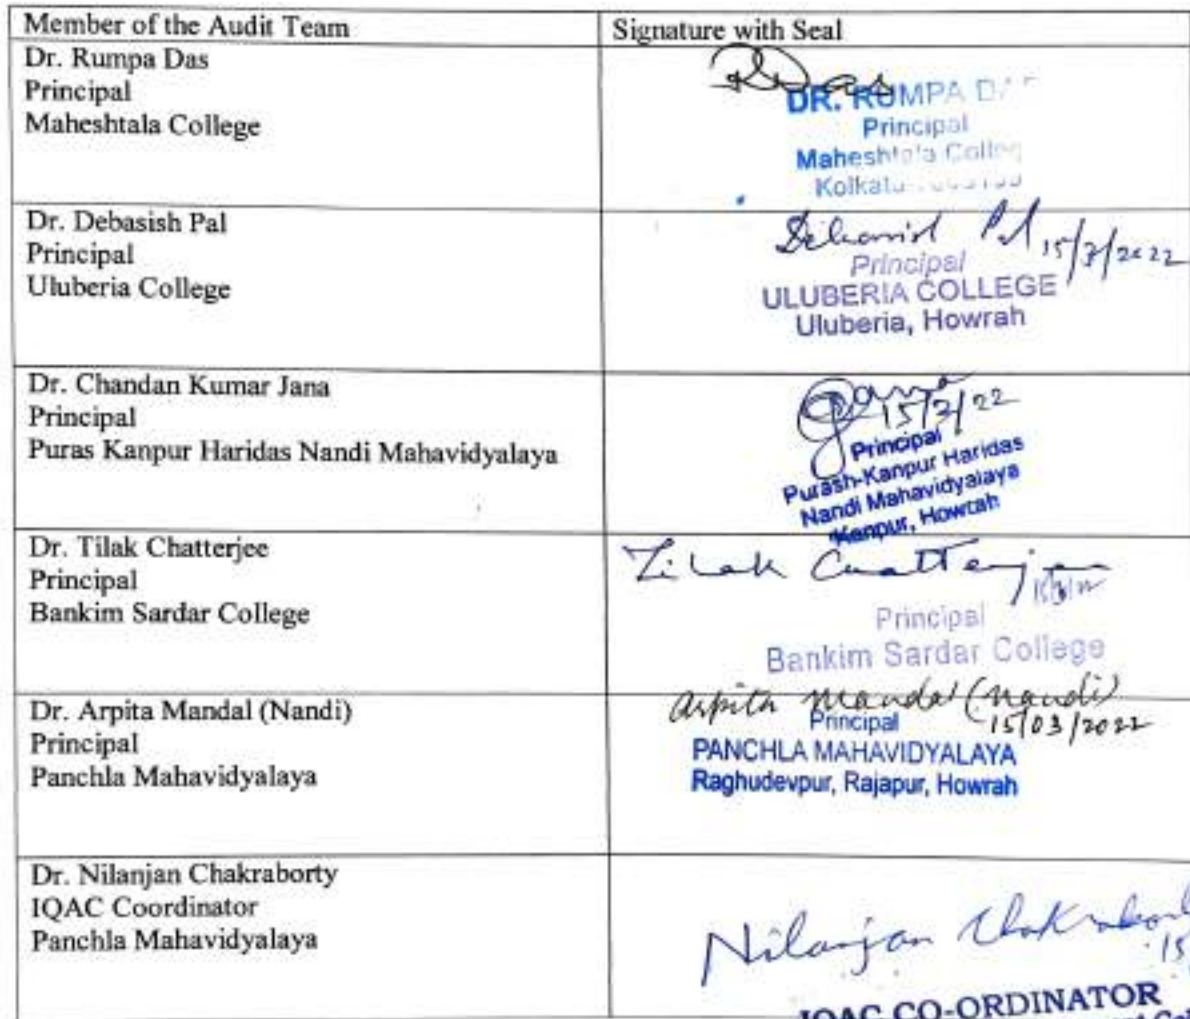 Member of the Audit Team
Signature with Seal
Dr. Rumpa Das
Principal
Maheshtala College
RDas
DR. RUMPA
Principal
Maheshtala
Kolkata
Dr. Debasish Pal
Principal
Uluberia College
Debasish Pal 15/3/2022
Principal
ULUBERIA COLLEGE
Uluberia, Howrah
Dr. Chandan Kumar Jana
Principal
Puras Kanpur Haridas Nandi Mahavidyalaya
Jana
15/3/22
Principal
Purash-Kanpur Haridas
Nandi Mahavidyalaya
Kanpur, Howrah
Dr. Tilak Chatterjee
Principal
Bankim Sardar College
Tilak Chatterjee
Principal
Bankim Sardar College
Dr. Arpita Mandal (Nandi)
Principal
Panchla Mahavidyalaya
Arpita Mandal (Nandi)
15/03/2022
Principal
PANCHLA MAHAVIDYALAYA
Raghudevpur, Rajapur, Howrah
Dr. Nilanjan Chakraborty
IQAC Coordinator
Panchla Mahavidyalaya
Nilanjan
15
IQAC CO-ORDINATOR